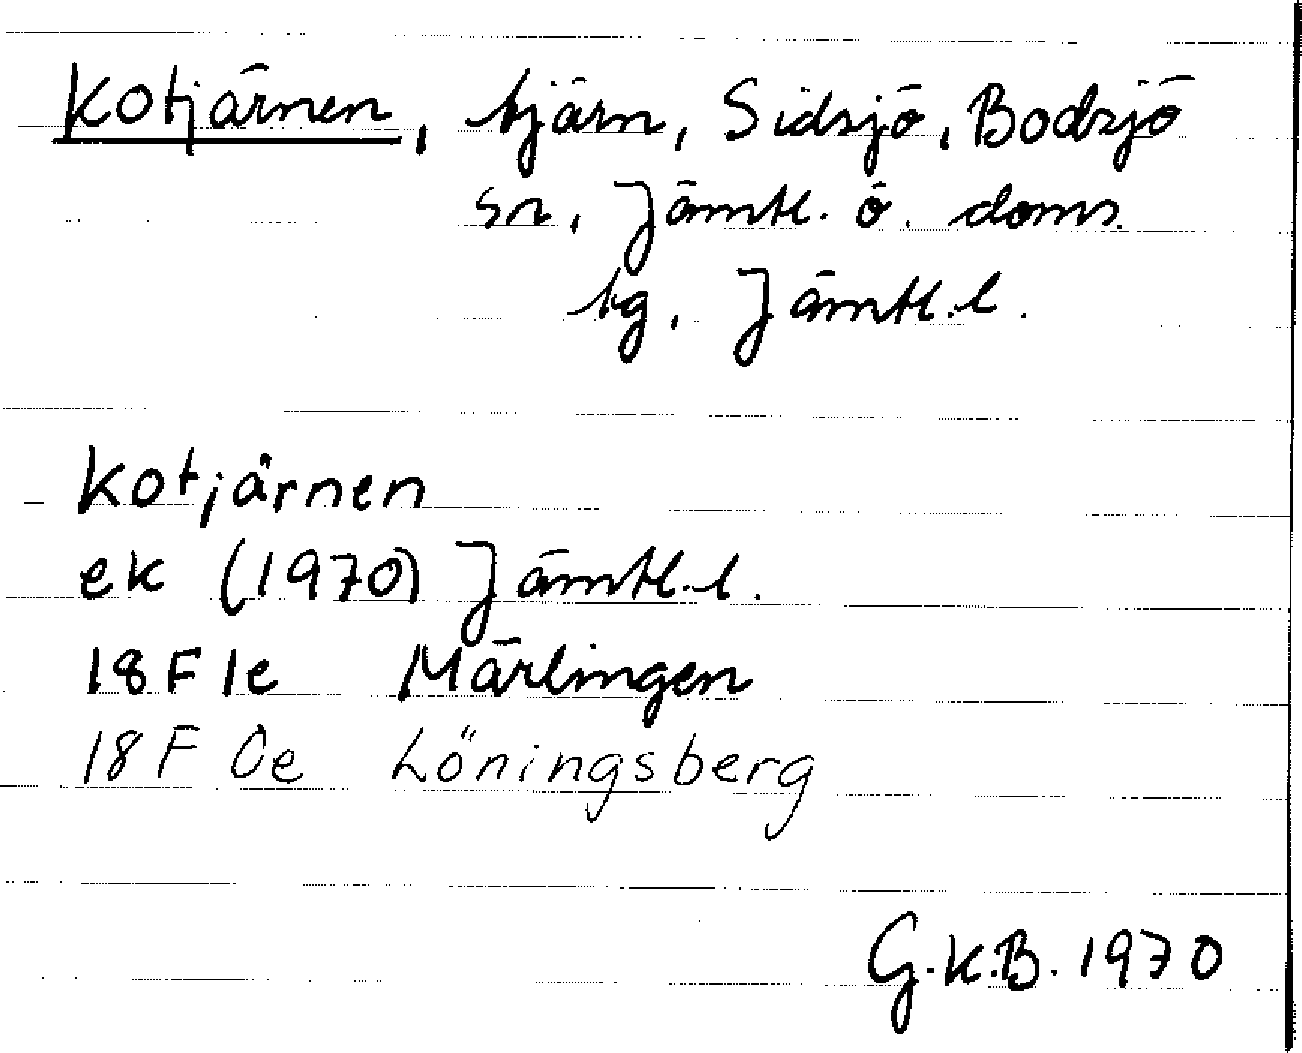 Kotjärnen, tjärn, Sidsjö, Bodsjö
sn, Jämtl. ö. doms.
tg, Jämtl.l.
Kotjärnen
ek (1970) Jämtl.l.
18F1e Märlingen
18F 0e Löningsberg
G.K.B. 1970